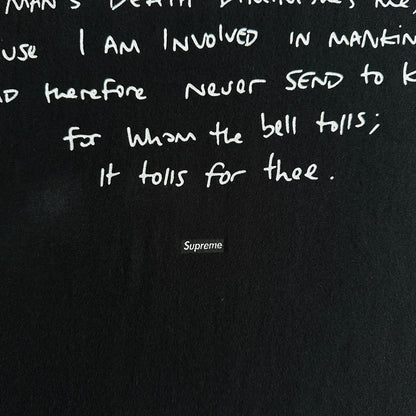 MAN'S DEATH DIMINISHES ME,
USE I AM INVOLVED IN MANKIN
D therefore never SEND to K
for whom the bell tolls;
It tolls for thee.
Supreme